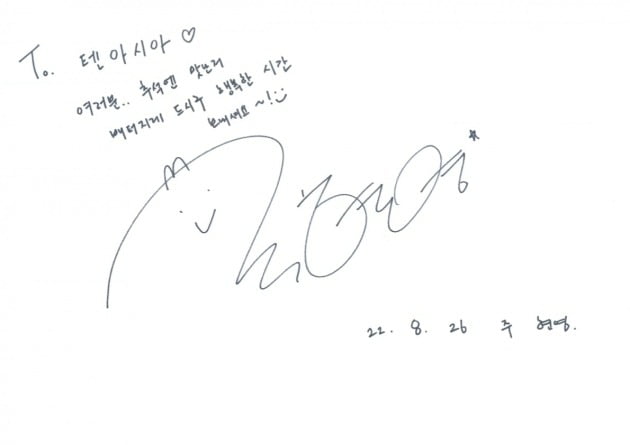 To. 텐아시아 ♡
여러분.. 추석엔 맛난거
배터지게 드시구 행복한 시간
보내세요~!
22. 8. 26 주 현영.